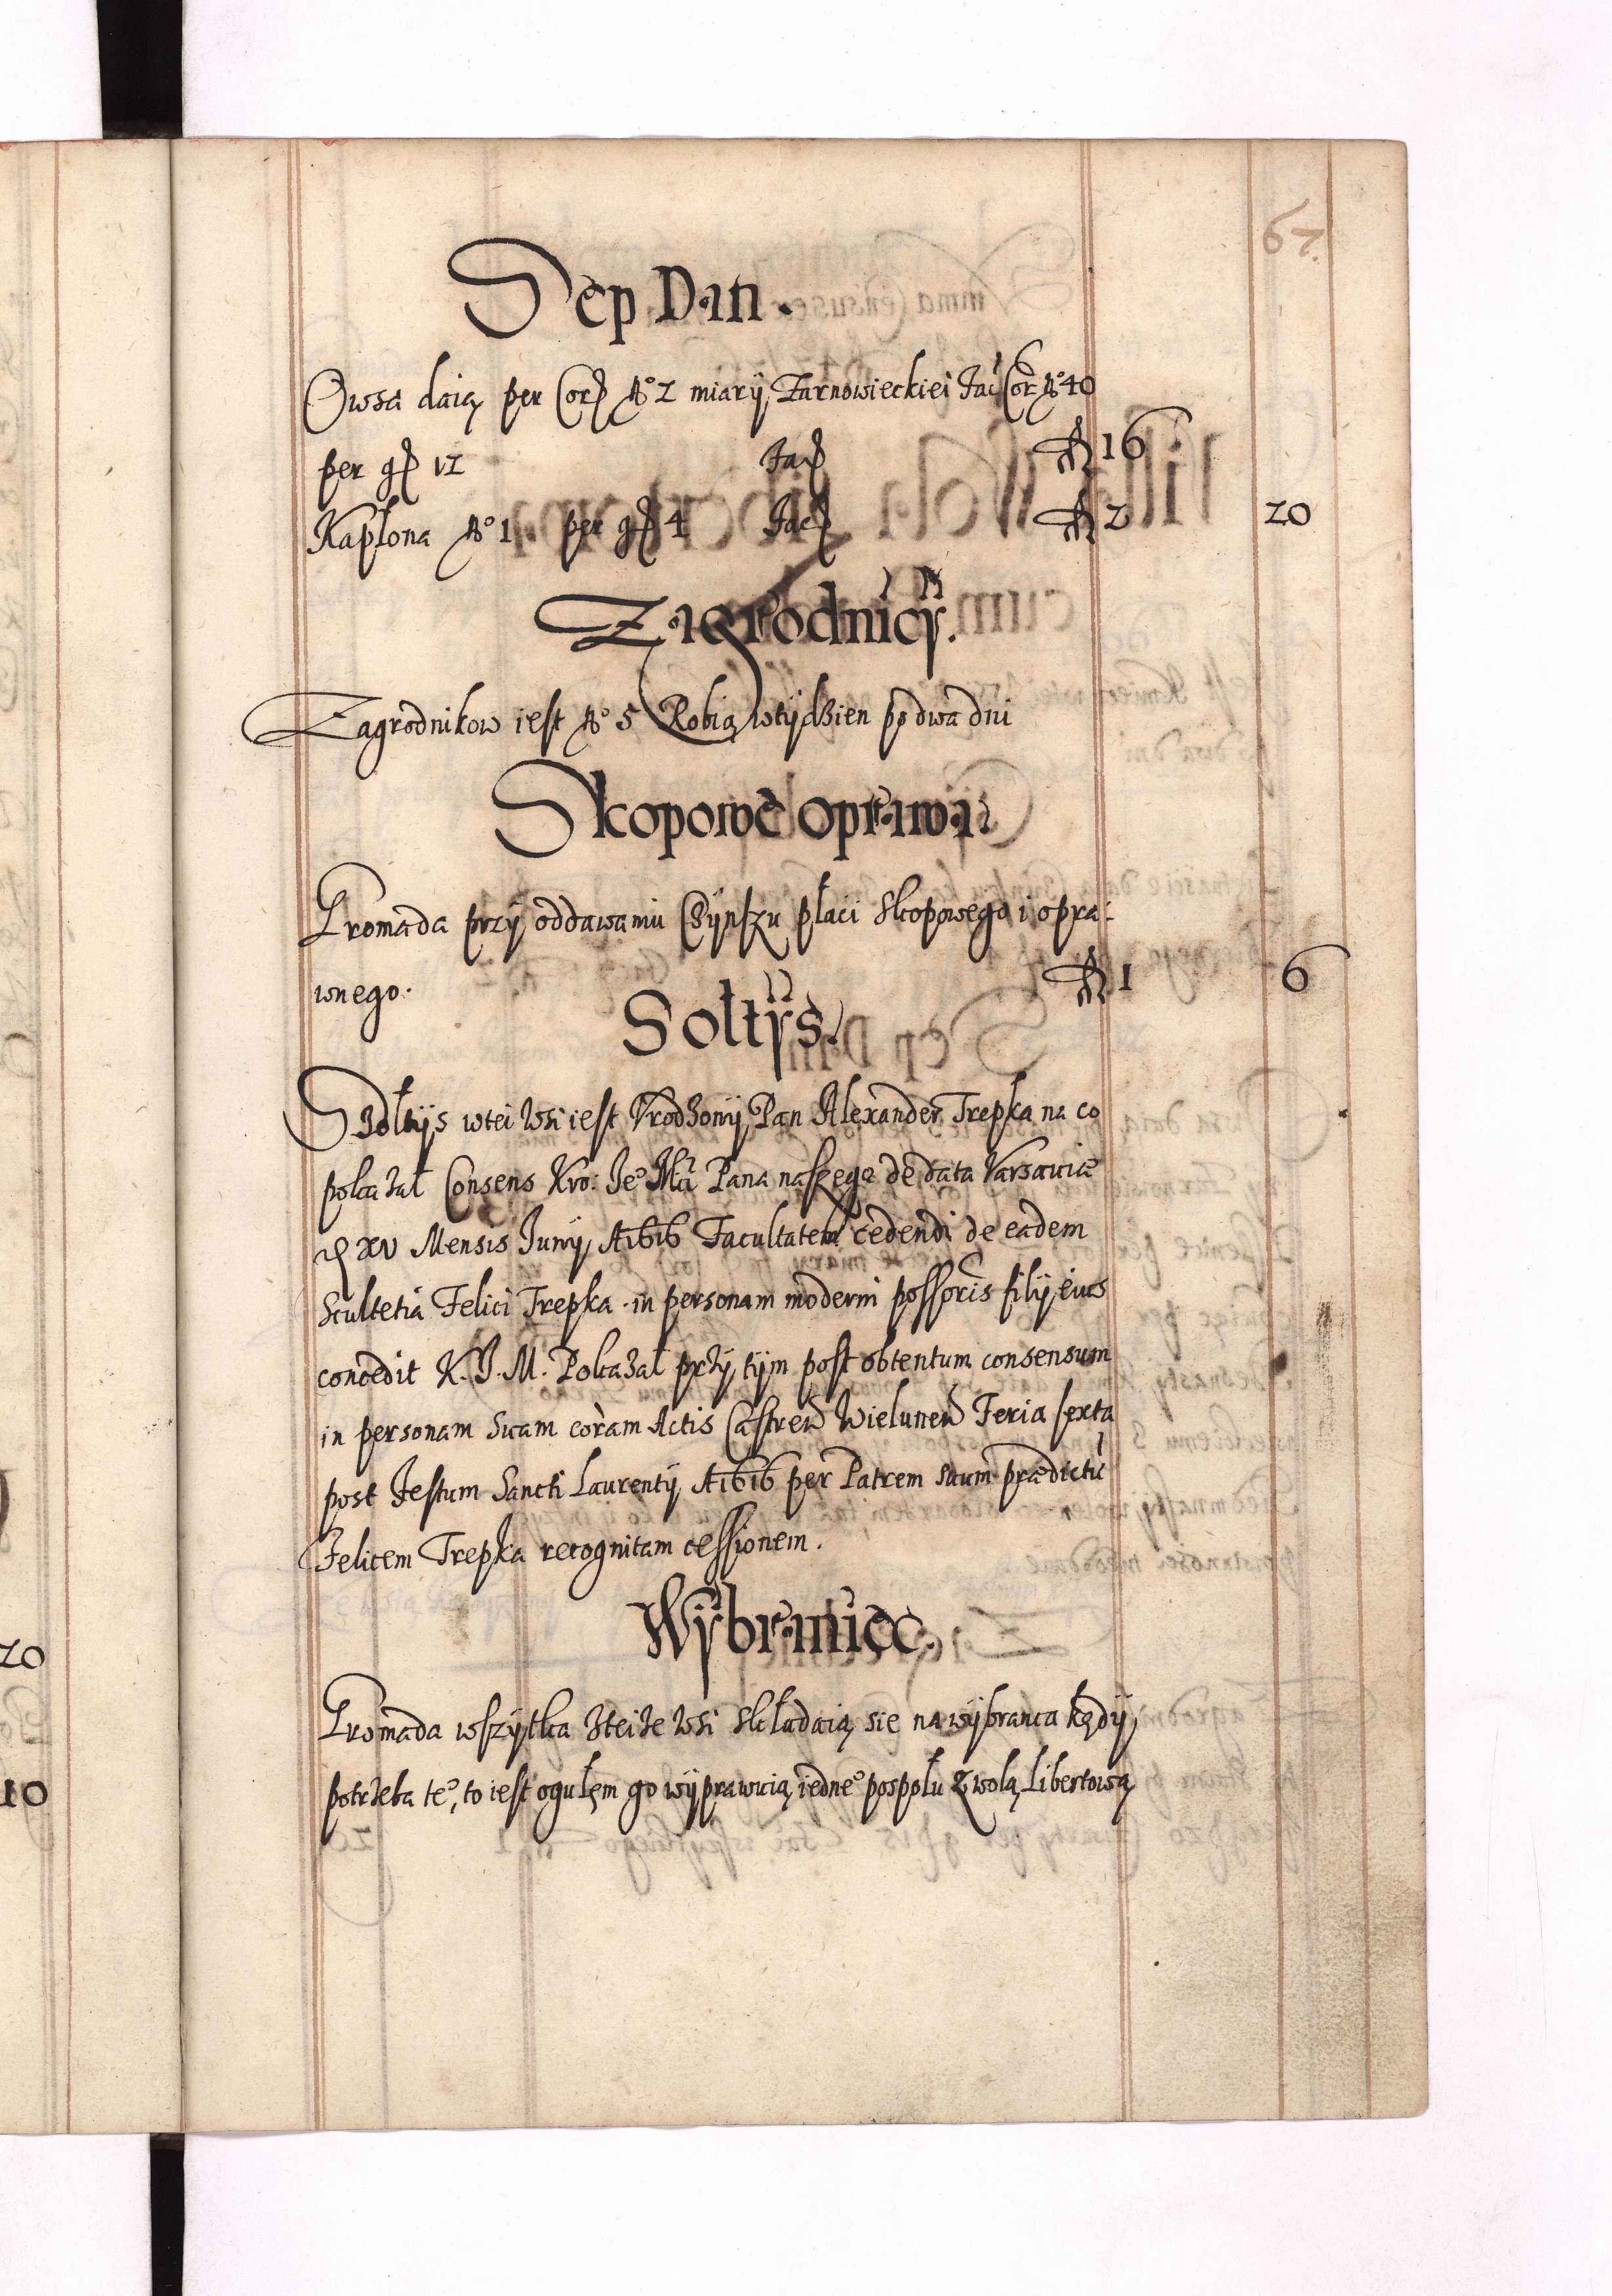 67.
Sep Dan.
Owsa daią per Cor No 2 miary Zarnowieckiei fac Cor No 40
per gr 12 Fac fl 16
Kapłona No 1 per gr 4 Fac fl 2 20
Zagrodnicy.
Zagrodnikow iest No 5 Robią wtydzien po dwa dni
Skopowe oprawa.
Gromada przy oddawaniu Czynszu płaci Skopowego i opra:
wnego. fl 1 6
Soltys.
Szoltys wtei wsi iest Vrodzony Pan Alexander Trepka na co
pokazal Consens Kro: Je° Mci Pana naszego de data Varsaviæ
XV Mensis Juny A1616 Facultatem cedendi de eadem
Scultetia Felici Trepka in personam moderni possoris filij eius
concedit K. J. M. Pokazal przy tym post obtentum consensum
in personam Suam coram Actis Castren Wielunen Feria sexta
post Festum Sancti Laurentij A1616 per Patrem suum prædictu
Felicem Trepka recognitam cessionem.
Wybraniec.
Gromada wszytka zteize wsi składaią sie na wybranca kędy
potrzeba te°, to iest ogułem go wyprawuią iedne° pospołu z wolą Libertową
20
10